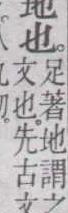 也。
足著地謂之
文也。先古文